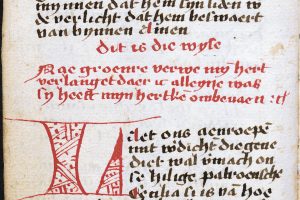 mynnen dat hem syn liden w
de verlicht dat hem beswaert
van bynnen Amen
dit is die wyse
Nae groenre verwe myn hert
verlanget daer ic alleyne was
sy heeft myn hertkē ombeuaen
Laet ons aenroepē
mit ydicht diegene
diet wal vmach on
se hilige patroersche
Cecilia sis vā hoe